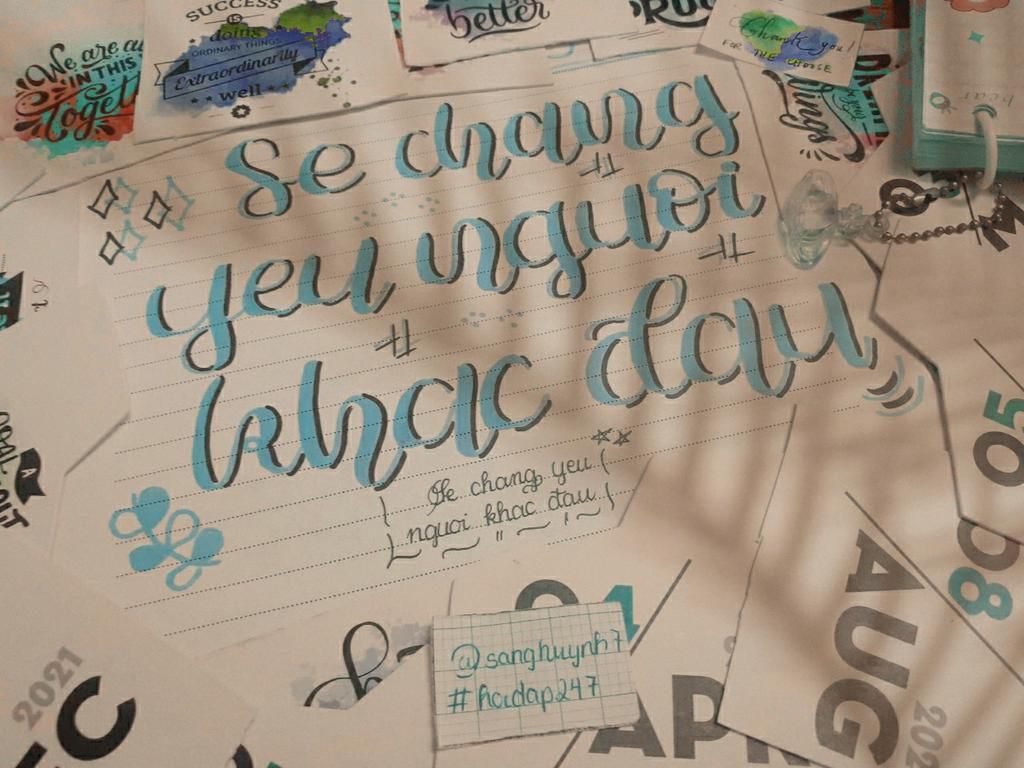 SUCCESS
IS
doing
ORDINARY THINGS
Extraordinarily
well
We are
IN THIS
better
Thank you!
FOR THE CHOOSE
Se chang
yeu nguoi
khac dau
Se chang yeu
nguoi khac đau
@sanghuynh7
#hoidap247
2021
AUG
05
08